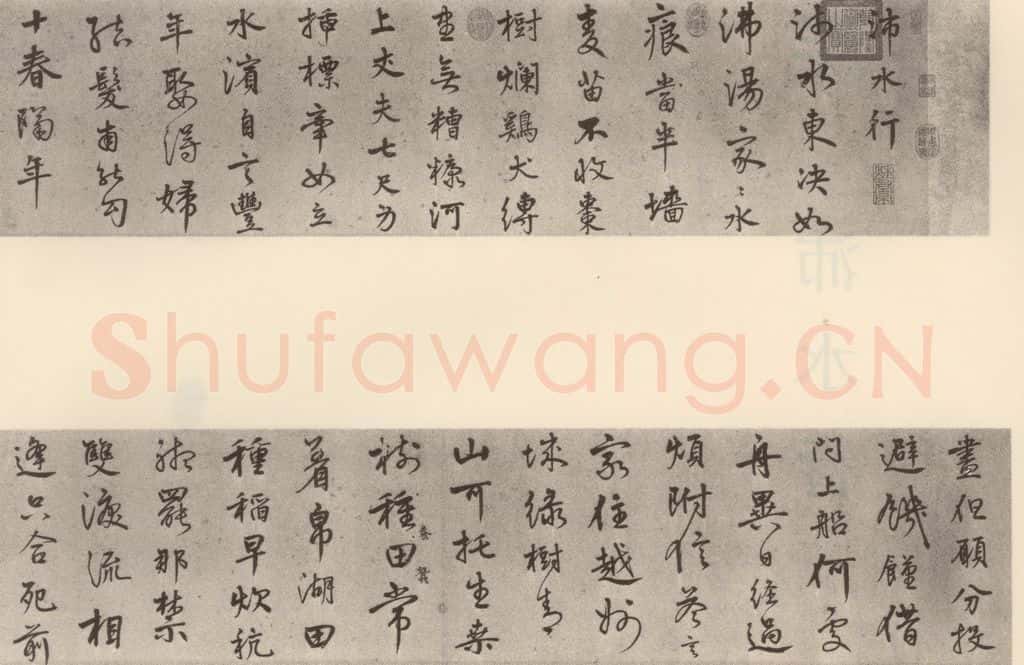 沛水行
水東決如
沸湯家々水
痕當半墻
麦苗不收棗
樹爛鷄犬縛
無糟糠河
上丈夫七尺身
插標牽女立
水濱自言豐
年娶得婦
結髮甫能勾
十春隔年
盡但願分投
避饑饉借
問上船何處
舟異日經過
煩附信答言
家住越州
城綠樹青
山可托生桑
樹種田常
着帛湖田
種稻早炊秔
聽罷那禁
雙淚流相
逢只合死前
Shufawang.CN